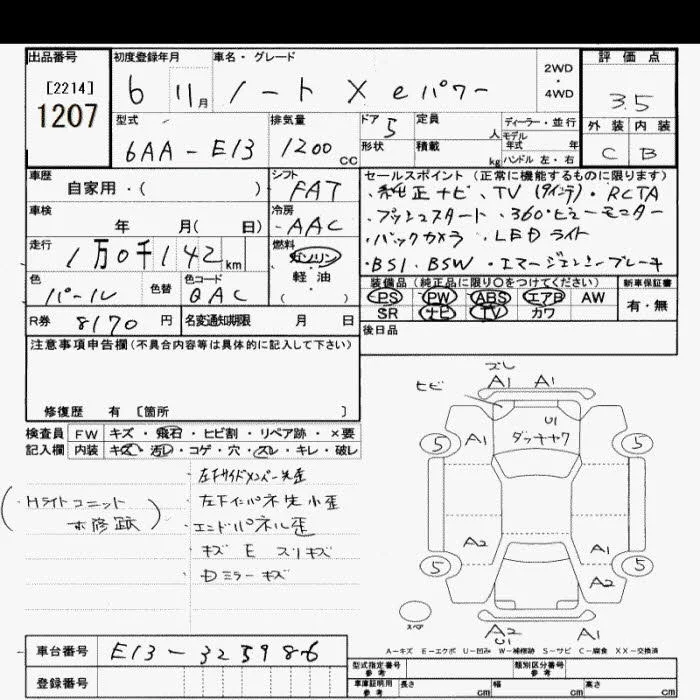 出品番号 初度登録年月 車名・グレード 評価点
[2214] 6 11月 ノート X eパワー 2WD・4WD 3.5
1207
型式 排気量 ドア 定員 ディーラー・並行 外装 内装
6AA-E13 1200CC 5 人 モデル年式 年 C B
形状 積載 kg ハンドル 左・右
車歴 シフト セールスポイント(正常に機能するものに限ります)
自家用・( ) FAT ・純正ナビ・TV(9インチ)・RCTA
車検 冷房 ・プッシュスタート・360°ビューモニター
年 月( 日) AAC ・バックカメラ・LEDライト
走行 燃料 ・BSI・BSW・エマージェンシーブレーキ
1万0千142km ガソリン・軽・油
色 色替 色コード 装備品(純正品に限り○をつけてください) 新車保証書
パール QAC PS PW ABS エアB AW 有・無
SR ナビ TV カワ
R券 8170円 名変通知期限 月 日 後日品
注意事項申告欄(不具合内容等は具体的に記入して下さい)
修復歴 有 〔箇所 〕
検査員 FW キズ・飛石・ヒビ割・リペア跡・×要
記入欄 内装 キズ・汚レ・コゲ・穴・スレ・キレ・破レ
左下サイドメンバー先歪
(・Hライトユニット 左下インパネ先小歪
エンドパネル歪
キズ E スリキズ
Dミラーキズ
ズレ
ヒビ A1 A1
U1
5 A1 ダッキヤク 5
A2 A1
5 A2 5
スペア A2 U1 A1
A-キズ E-エクボ U-凹み W-補修跡 S-サビ C-腐食 XX-交換済
車台番号 E13-325986
登録番号
型式指定番号 参考 類別区分番号 参考
車庫証明用 参考 長さ cm 幅 cm 高さ cm